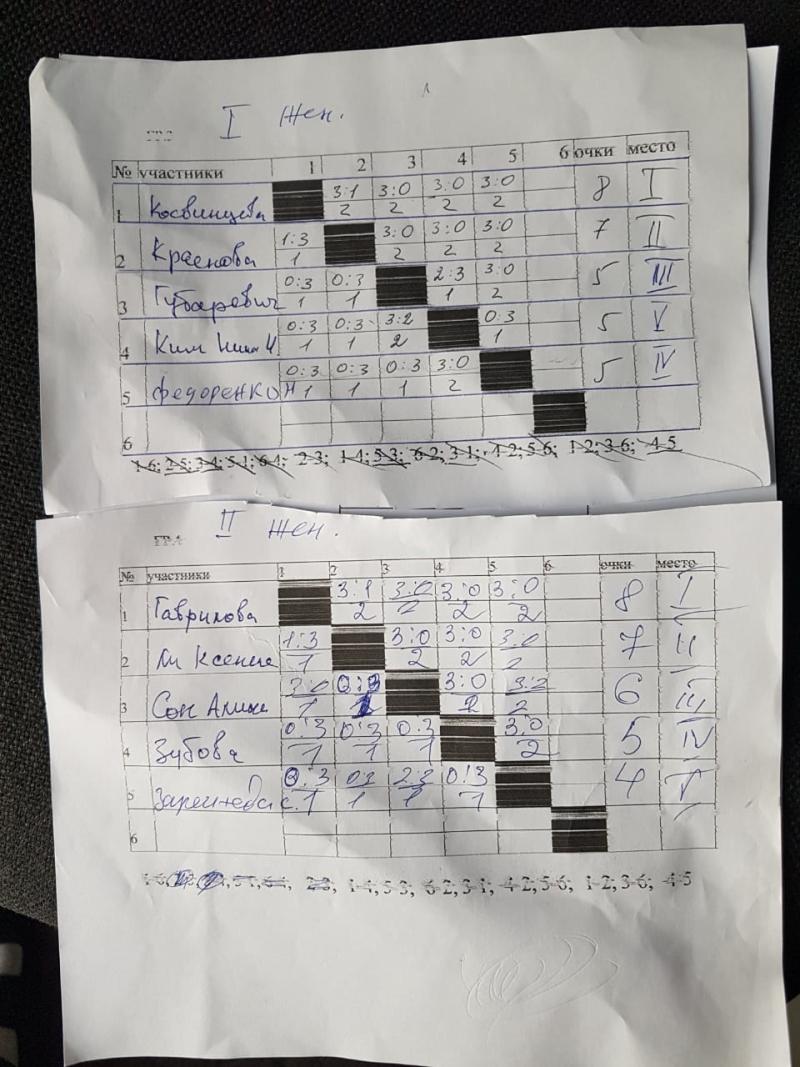 I жен.
№ участники 1 2 3 4 5 6 очки место
3:1 3:0 3:0 3:0
1 Косвинцева 2 2 2 2 8 I
1:3 3:0 3:0 3:0
2 Краснова 1 2 2 2 7 II
0:3 0:3 2:3 3:0
3 Губаревич 1 1 1 2 5 III
0:3 0:3 3:2 0:3
4 Ким 1 1 2 1 5 V
0:3 0:3 0:3 3:0
5 Федоренко Н 1 1 1 2 5 IV
6
1-6; 2-5; 3-4; 5-1; 6-4; 2-3; 1-4; 5-3; 6-2; 3-1; 4-2; 5-6; 1-2; 3-6; 4-5
II жен.
№ участники 1 2 3 4 5 6 очки место
3:1 3:0 3:0 3:0
1 Гаврилова 2 2 2 2 8 I
1:3 3:0 3:0 3:0
2 Ли Ксения 1 2 2 2 7 II
0:3 3:0 3:2
3 Сон 1 2 2 6 III
0:3 0:3 0:3 3:0
4 Зубова 1 1 1 2 5 IV
0:3 0:3 2:3 0:3
5 1 1 1 1 4 V
6
2-3; 1-4; 5-3; 6-2; 3-1; 4-2; 5-6; 1-2; 3-6; 4-5